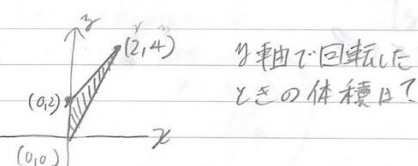 y
(2,4)
(0,2)
x
(0,0)
y軸で回転した
ときの体積は?